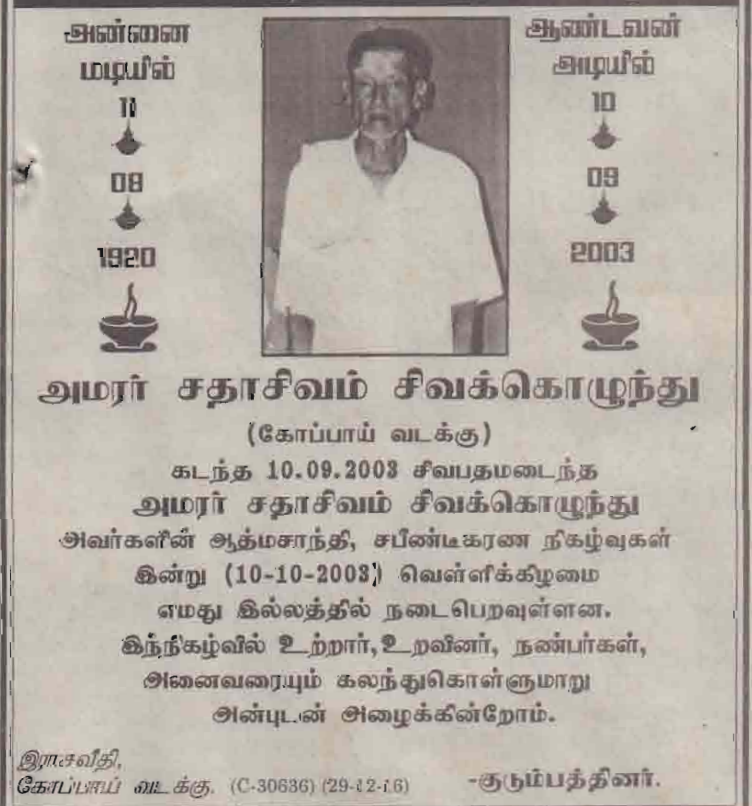 அன்னை
மடியில்
11
08
1920
ஆண்டவன்
அடியில்
10
09
2003
அமரர் சதாசிவம் சிவக்கொழுந்து
(கோப்பாய் வடக்கு)
கடந்த 10.09.2003 சிவபதமடைந்த
அமரர் சதாசிவம் சிவக்கொழுந்து
அவர்களின் ஆத்மசாந்தி, சபீண்டீகரண நிகழ்வுகள்
இன்று (10-10-2003) வெள்ளிக்கிழமை
எமது இல்லத்தில் நடைபெறவுள்ளன.
இந்நிகழ்வில் உற்றார், உறவினர், நண்பர்கள்,
அனைவரையும் கலந்துகொள்ளுமாறு
அன்புடன் அழைக்கின்றோம்.
இராசவீதி,
கோப்பாய் வடக்கு. (C-30636) -குடும்பத்தினர்.